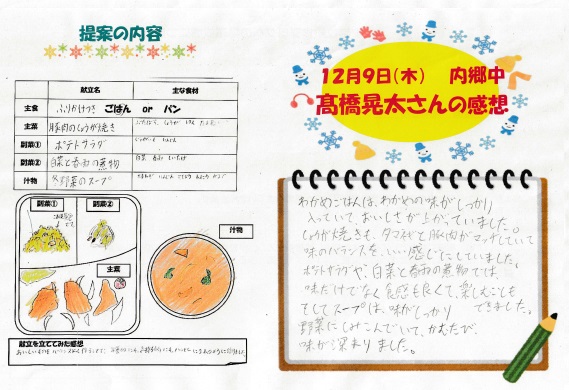 提案の内容
献立名 主な食材
主食 ふりかけつき ごはん or パン
主菜 豚肉のしょうが焼き
副菜① ポテトサラダ
副菜② 白菜と春雨の煮物 白菜 春雨
汁物 冬野菜のスープ
副菜① 副菜②
汁物
主菜
献立を立ててみた感想
12月9日(木) 内郷中
髙橋晃太さんの感想
わかめごはんは、わかめの味がしっかり
入っていて、おいしさが上がっていました。
しょうが焼きも、タマネギと豚肉がマッチしていて
味のバランスを、いい感じにしていました。
ポテトサラダや、白菜と春雨の煮物では、
味だけでなく食感も良くて、楽しむことも
できました。
そしてスープは、味がしっかり
野菜にしみこんでいて、かむたび、
味が深まりました。